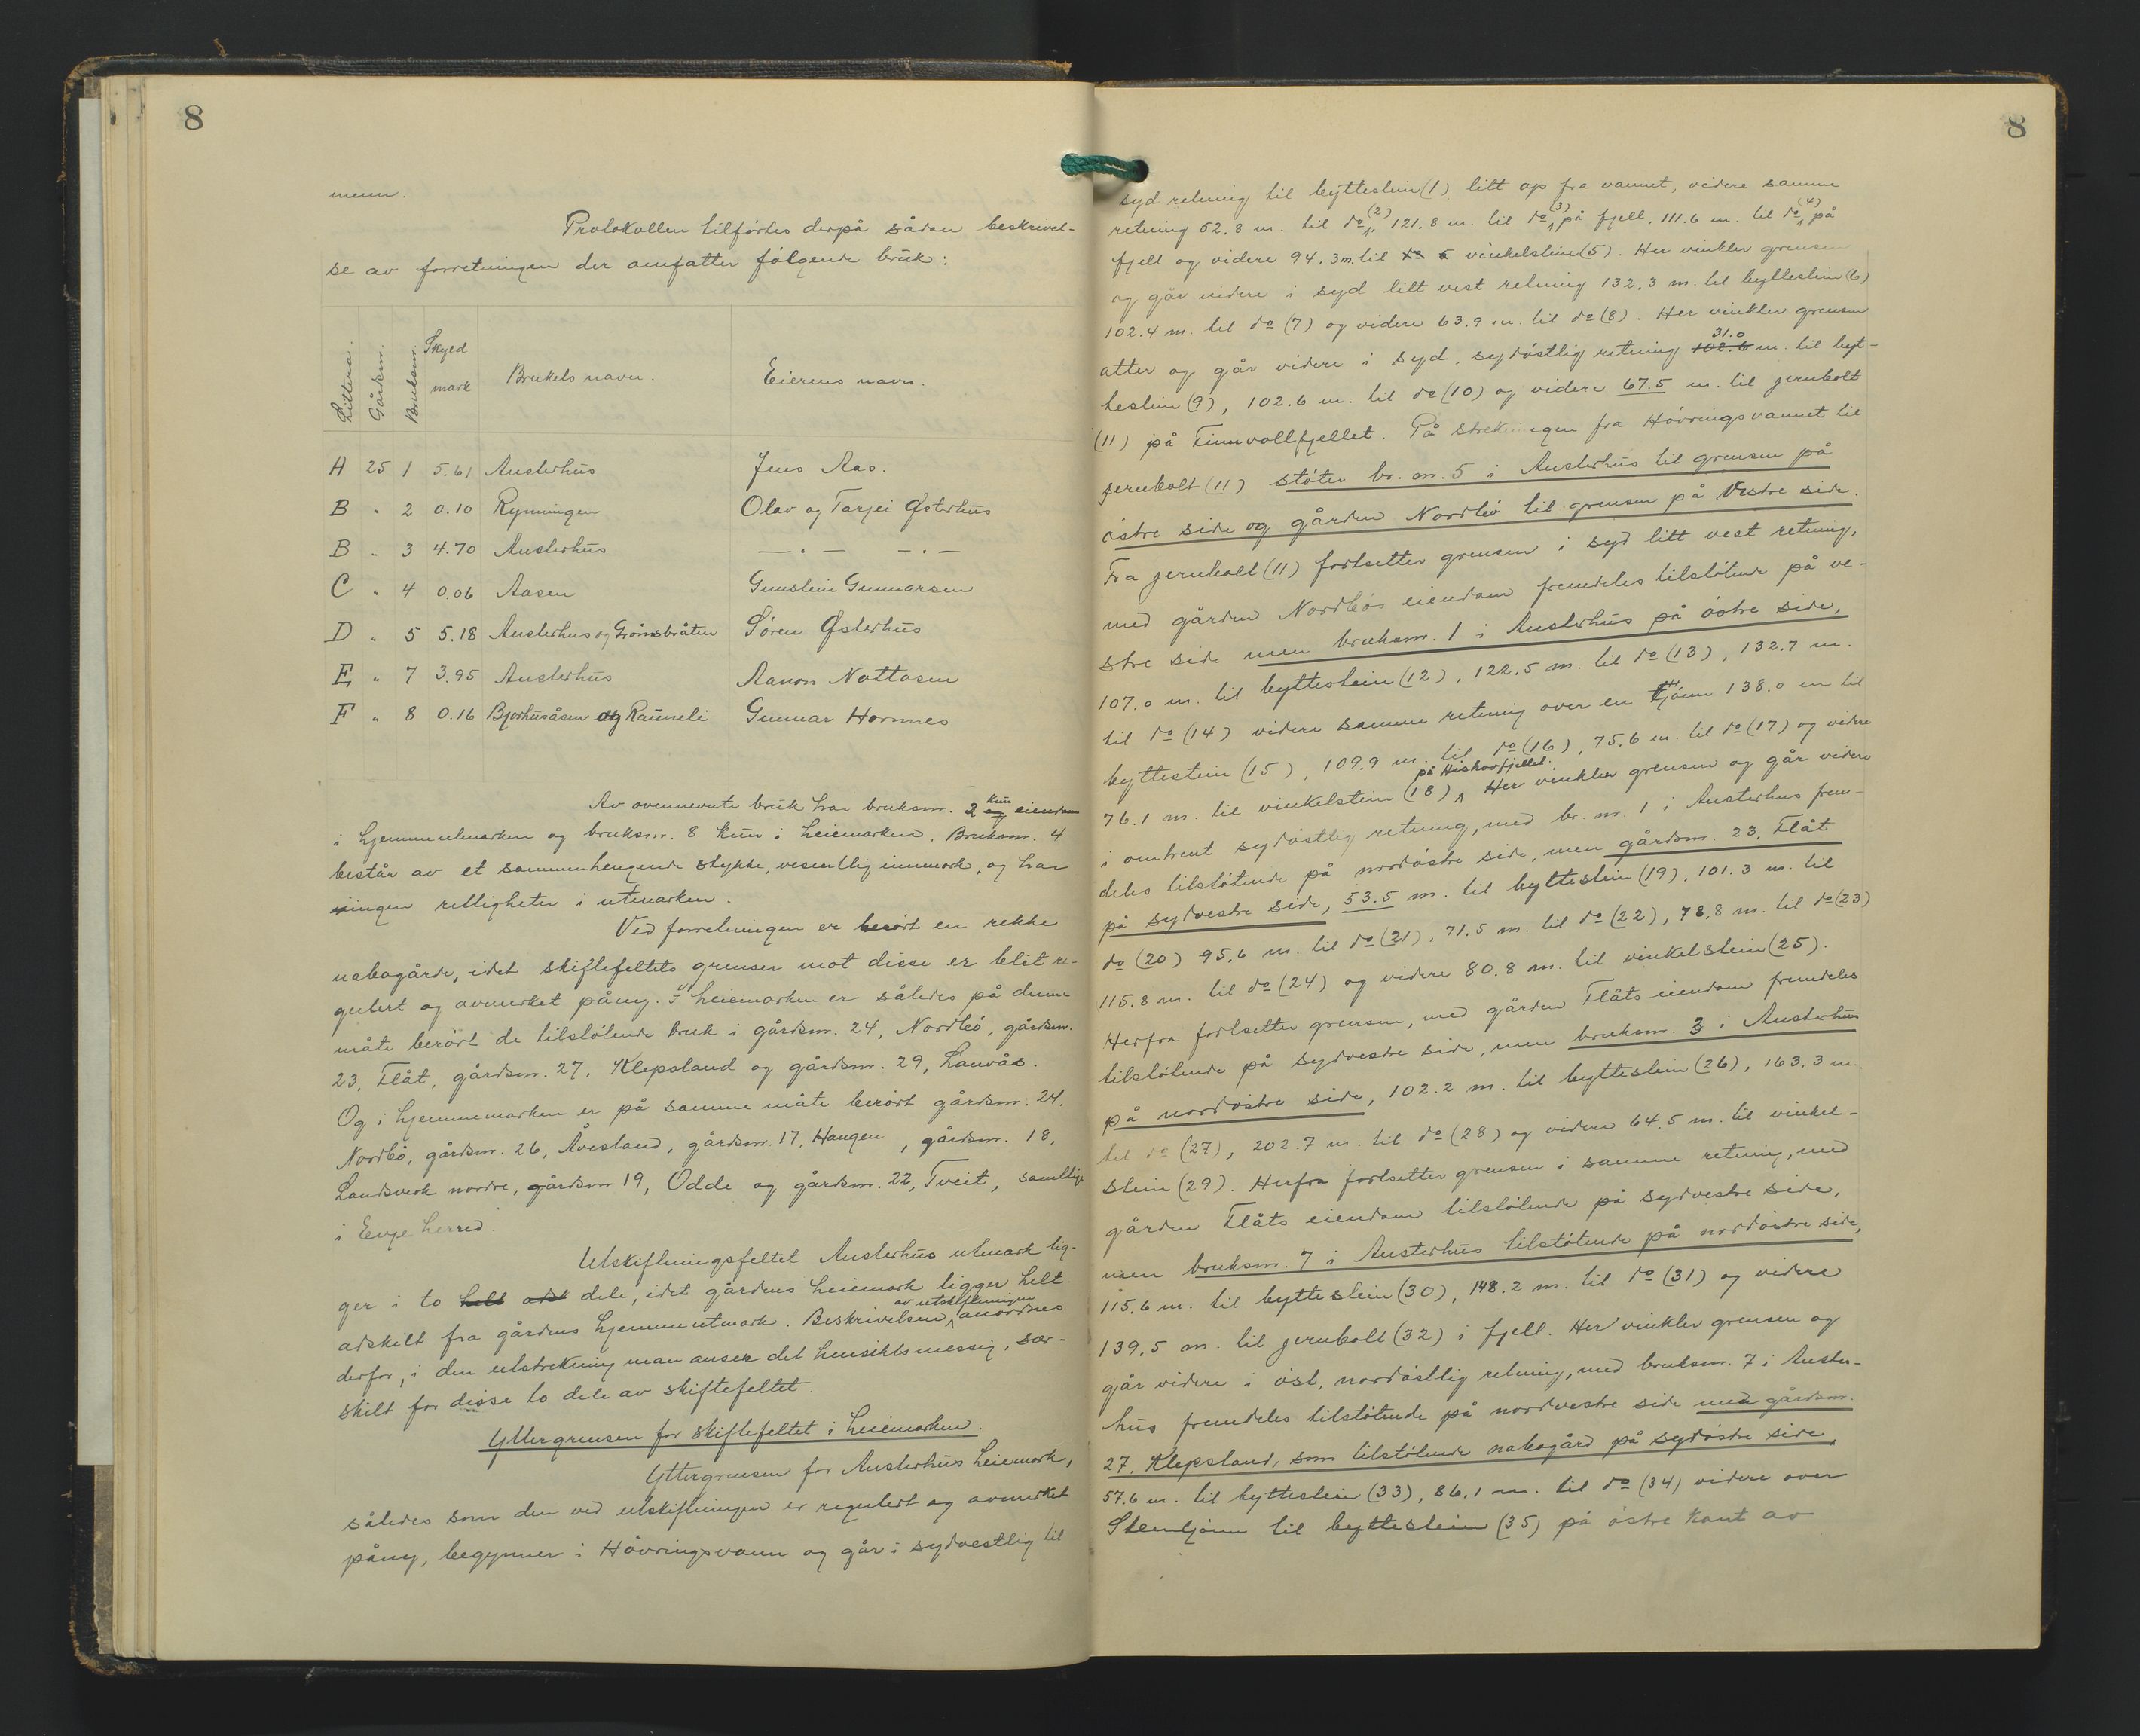 8
menn.
Protokollen tilførtes derpå sådan beskrivel-
se av forretningen der omfatter følgende bruk:
Littera. Gårdsnr. Bruksnr. Skyld mark Brukets navn. Eierens navn.
A 25 1 5.61 Austerhus Jens Aas.
B " 2 0.10 Rynningen Olav og Tarjei Østerhus
B " 3 4.70 Austerhus — . — — . —
C " 4 0.06 Aasen Gunstein Gunnarsen
D " 5 5.18 Austerhus og Grönsbråten Søren Østerhus
E " 7 3.95 Austerhus Aanon Nottosen
F " 8 0.16 Bjorhusåsen og Rauneli Gunnar Hornnes
Av ovennevnte bruk har bruksnr. 2 kun eiendom
i hjemmeutmarken og bruksnr. 8 kun i heiemarken. Bruksnr. 4
består av et sammenhengende stykke, vesentlig innmark, og har
ingen rettigheter i utmarken.
Ved forretningen er berört en rekke
nabogårde, idet skiftefeltets grenser mot disse er blit re-
gulert og avmerket påny. I heiemarken er således på denne
måte berört de tilstötende bruk i gårdsnr. 24, Nordbö, gårdsnr.
23, Flåt, gårdsnr. 27, Klepsland og gårdsnr. 29, Lauvås.
Og i hjemmemarken er på samme måte berört gårdsnr. 24.
Nordbö, gårdsnr. 26, Åvesland, gårdsnr. 17, Haugen, gårdsnr. 18,
Landsverk nordre, gårdsnr 19, Odde og gårdsnr. 22, Tveit, samtlige
i Evje herred.
Utskiftningsfeltet Austerhus utmark lig-
ger i to helt adsk dele, idet gårdens heiemark ligger helt
adskilt fra gårdens hjemmeutmark. Beskrivelsen av utskiftningen anordnes
derfor, i den utstrekning man anser det hensiktsmessig, sær-
skilt for disse to dele av skiftefeltet.
Yttergrensen for skiftefeltet i heiemarken.
Yttergrensen for Austerhus heiemark,
således som den ved utskiftningen er regulert og avmerket
påny, begynner i Hövringsvann og går i sydvestlig til
8
syd retning til byttestein (1) litt op fra vannet, videre samme
retning 52.8 m. til do (2), 121.8 m. til do (3) på fjell, 111.6 m. til do (4) på
fjell og videre 94.3 m. til do 5 vinkelstein (5). Her vinkler grensen
og går videre i syd litt vest retning 132.3 m. til byttestein (6)
102.4 m. til do (7) og videre 63.9 m. til do (8). Her vinkler grensen
atter og går videre i syd, sydöstlig retning 102.6 31.0 m. til byt-
testein (9), 102.6 m. til do (10) og videre 67.5 m. til jernbolt
(11) på Finnvollfjellet. På strekningen fra Hövringsvannet til
jernbolt (11) stöter br. nr. 5 i Austerhus til grensen på
östre side og gården Nordbö til grensen på Vestre side.
Fra jernbolt (11) fortsetter grensen i syd litt vest retning,
med gården Nordbös eiendom fremdeles tilstötende på ve-
stre side men bruksnr. 1 i Austerhus på östre side,
107.0 m. til byttestein (12), 122.5 m. til do (13), 132.7 m.
til do (14) videre samme retning over en tjönn 138.0 m til
byttestein (15), 109.9 m. til do (16), 75.6 m. til do (17) og videre
76.1 m. til vinkelstein (18) på Hiskovfjellet. Her vinkler grensen og går videre
i omtrent sydöstlig retning, med br. nr. 1 i Austerhus frem-
deles tilstötende på nordöstre side, men gårdsnr. 23, Flåt
på sydvestre side, 53.5 m. til byttestein (19), 101.3 m. til
do (20) 95.6 m. til do (21), 71.5 m. til do (22), 78.8 m. til do (23)
115.8 m. til do (24) og videre 80.8 m. til vinkelstein (25).
Herfra fortsetter grensen, med gården Flåts eiendom fremdeles
tilstötende på sydvestre side, men bruksnr. 3 i Austerhus
på nordöstre side, 102.2 m. til byttestein (26), 163.3 m.
til do (27), 202.7 m. til do (28) og videre 64.5 m. til vinkel-
stein (29). Herfra fortsetter grensen i samme retning, med
gården Flåts eiendom tilstötende på sydvestre side,
men bruksnr. 7 i Austerhus tilstötende på nordöstre side,
115.6 m. til byttestein (30), 148.2 m. til do (31) og videre
139.5 m. til jernbolt (32) i fjell. Her vinkler grensen og
går videre i öst, nordöstlig retning, med bruksnr. 7 i Auster-
hus fremdeles tilstötende på nordvestre side med gårdsnr.
27. Klepsland, som tilstötende nabogård på sydöstre side,
57.6 m. til byttestein (33), 86.1 m. til do (34) videre over
Stemtjönn til byttestein (35) på östre kant av